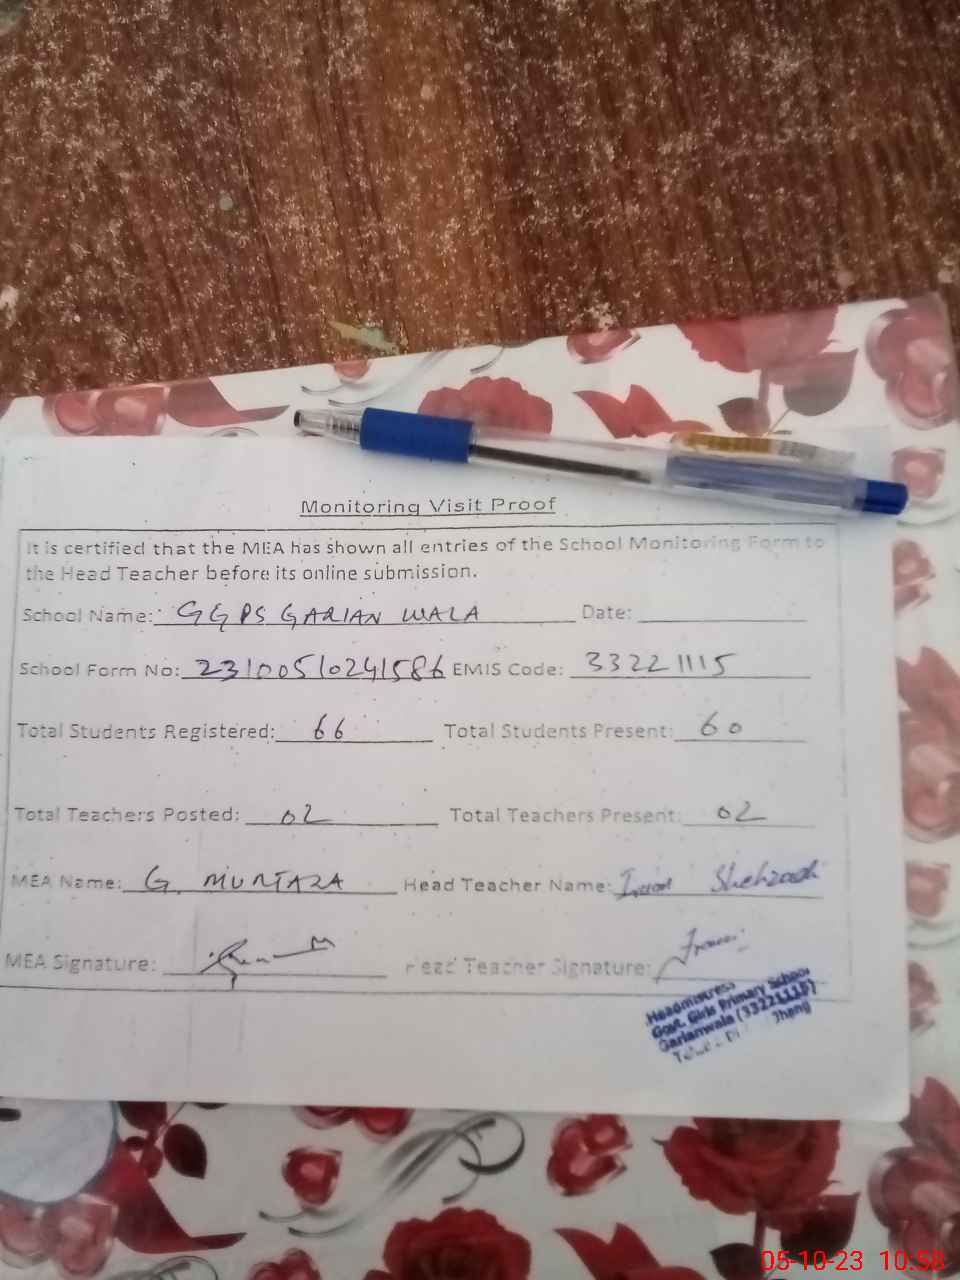 Monitoring Visit Proof
It is certified that the MEA has shown all entries of the School Monitoring Form to
the Head Teacher before its online submission.
School Name: GGPS GARIAN WALA Date:
School Form No: 23100510241586 EMIS Code: 33221115
Total Students Registered: 66 Total Students Present: 60
Total Teachers Posted: 02 Total Teachers Present: 02
MEA Name: G. MURTAZA Head Teacher Name: Shehzadi
MEA Signature: Head Teacher Signature:
Headmistress
Govt. Girls Primary School
Garianwala (33221115)
Jhang
05-10-23 10:58